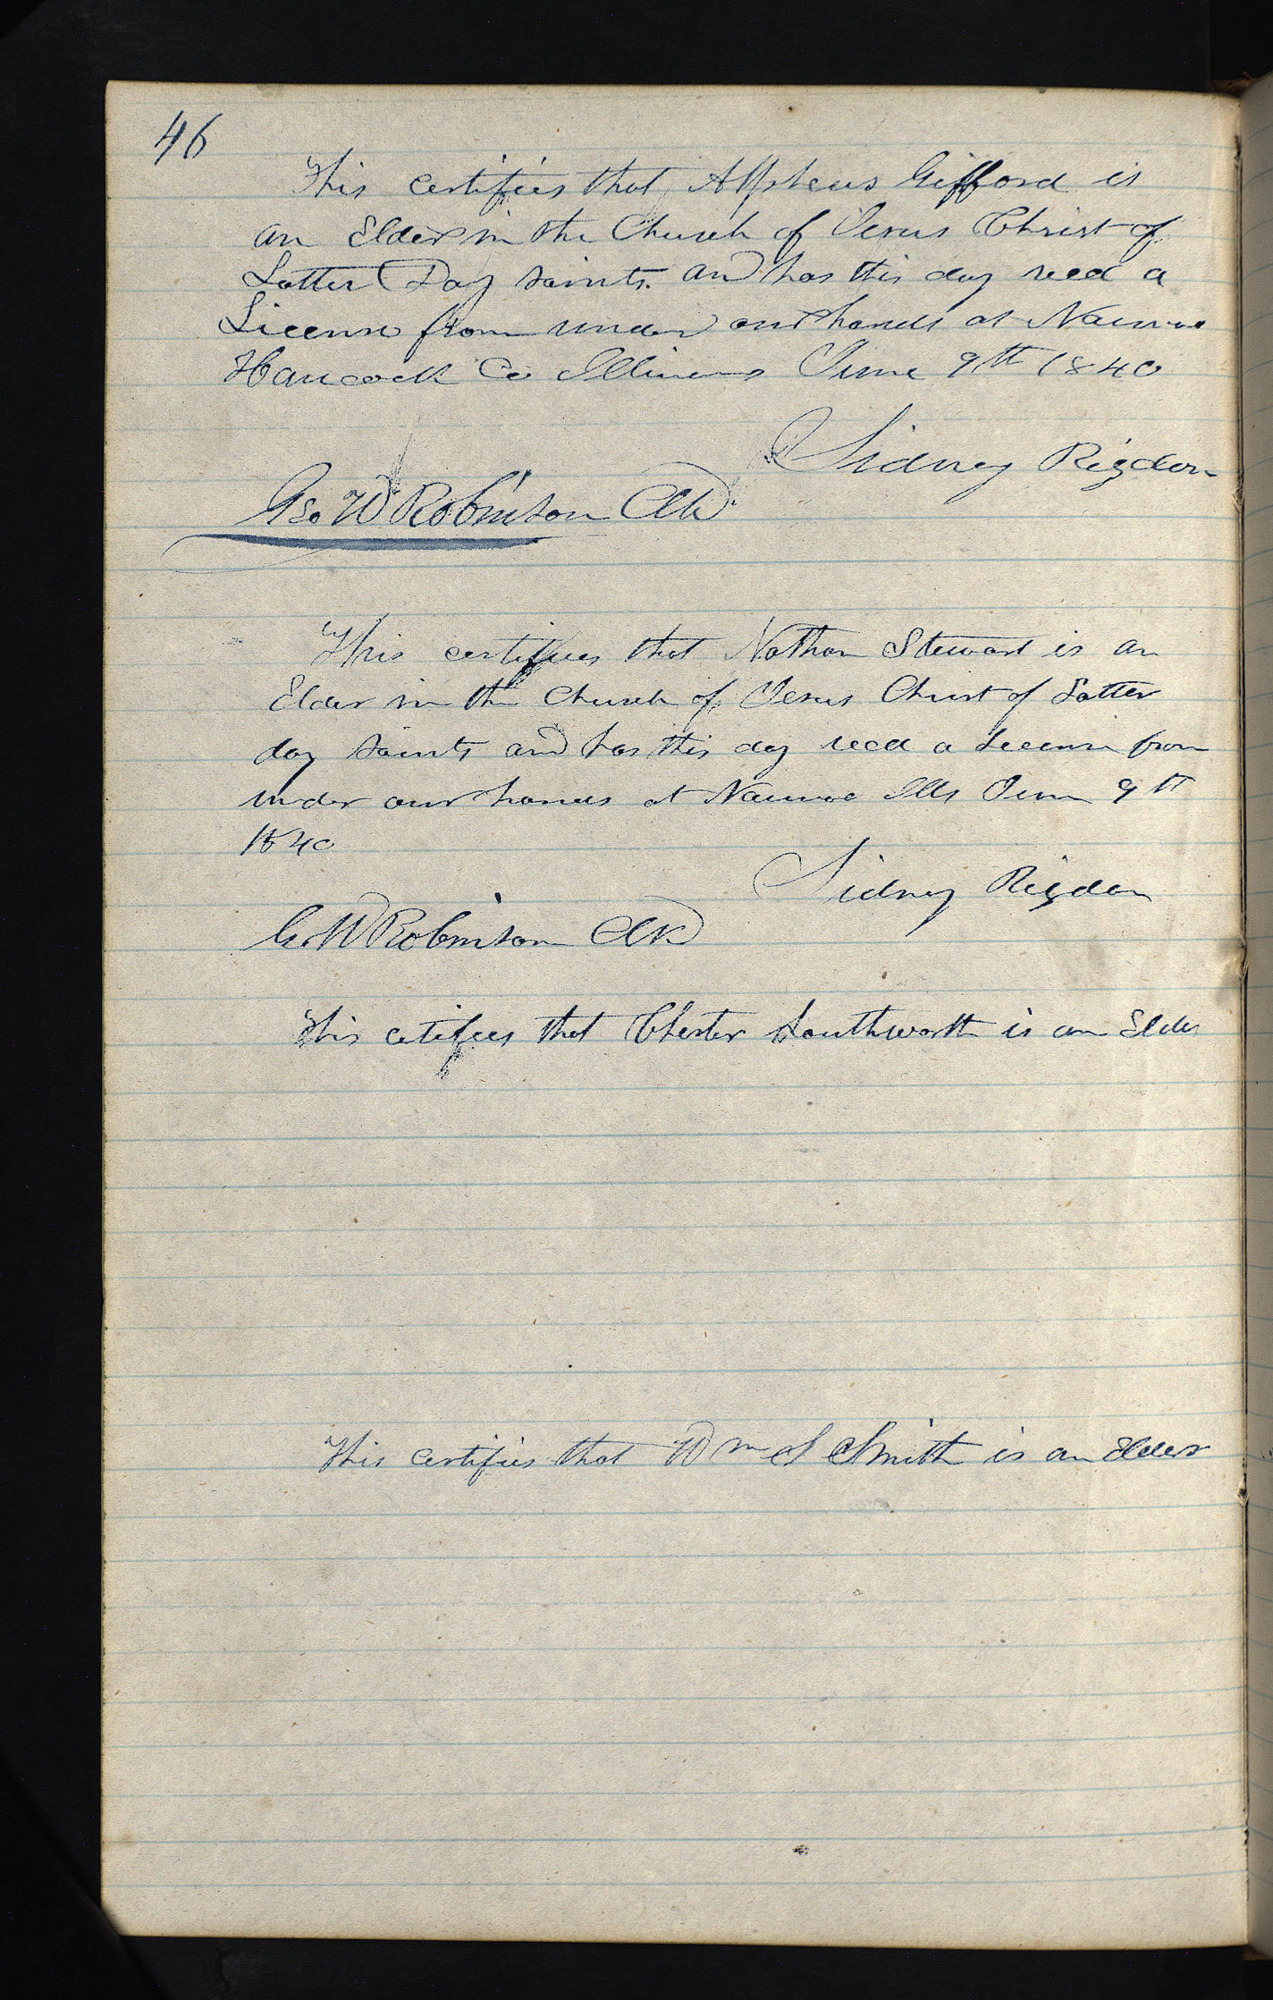 46
This certifies that Alpheus Gifford is
an Elder in the Church of Jesus Christ of
Latter Day Saints. and has this day recd a
License from under our hands at Nauvoo
Hancock Co Illinois June 9th 1840
Sidney Rigdon
Geo W Robinson Clk
This certifies that Nathan Steward is an
Elder in the Church of Jesus Christ of Latter
day Saints and has this day recd a License from
under our hands at Nauvoo Ills June 9th
1840
Sidney Rigdon
G. W Robinson Clk
This cetifies that Chester Southworth is an Elder
This certifies that Wm S Smith is an Elder